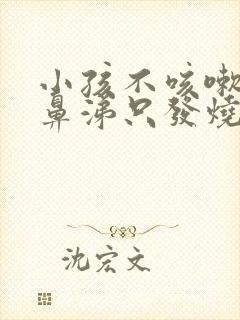 小孩不咳嗽
鼻涕只發燒
沈宏文